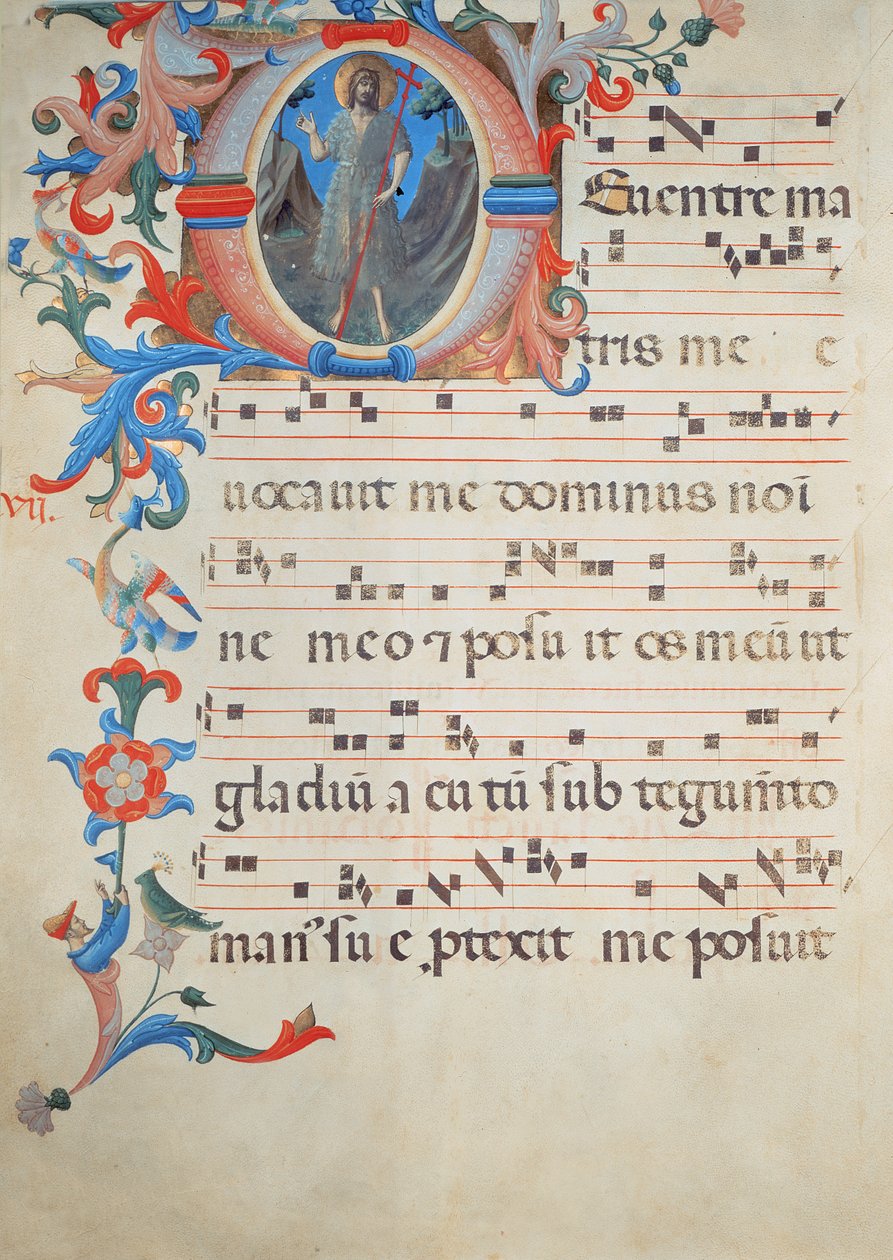 Euentre ma
tris me e
uocauit me dominus noī
vii.
ne meo ⁊ posu it os meū ut
gladiū a cu tū sub tegum̄to
man᷒ su e ꝓtexit me posuit